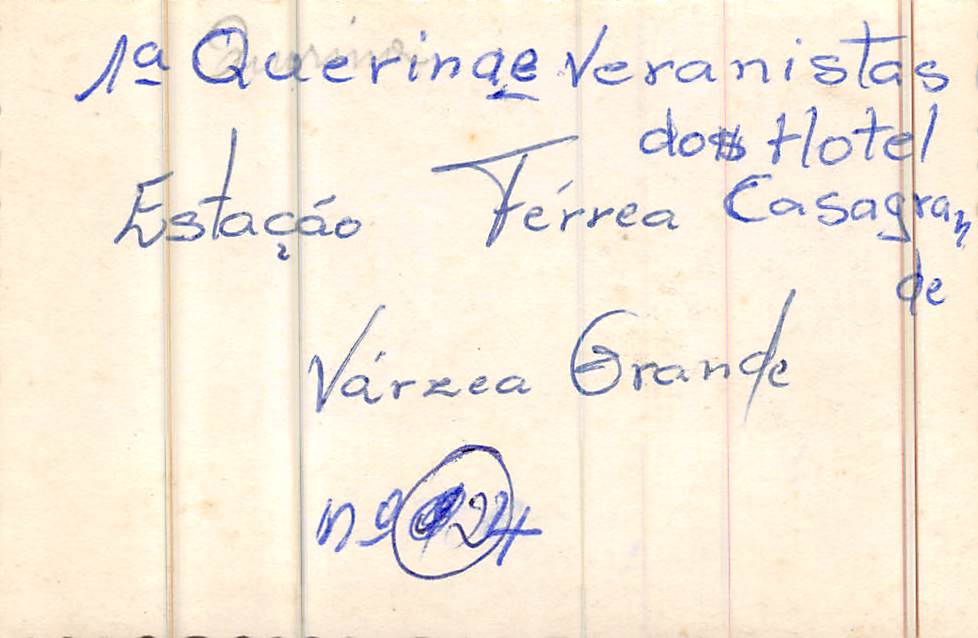 1ª Querinae Veranistas
dos Hotel
Estação Férrea Casagran
de
Várzea Grande
nº 24